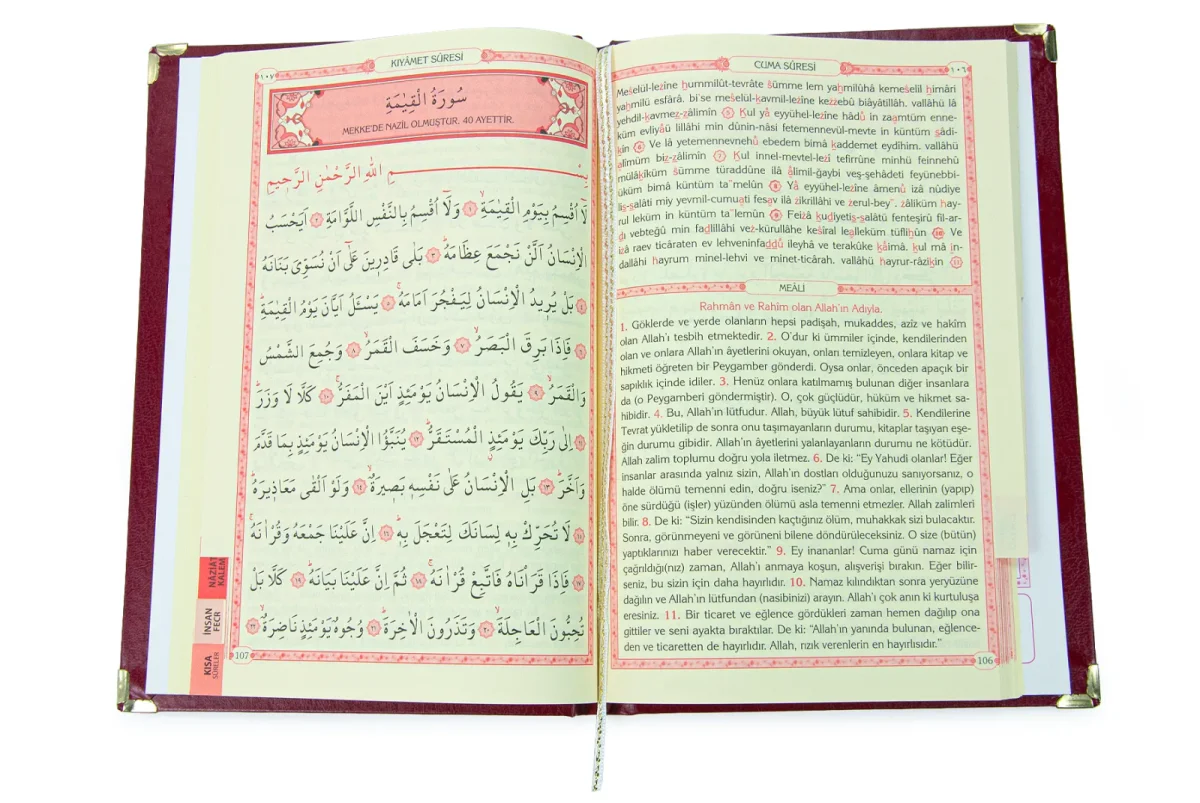 CUMA SÛRESİ
١٠٦
Meŝelül-lezîne ḥummilût-tevrâte ŝümme lem yaḥmilûhâ kemeŝelil ḥimâri
yaḥmilu esfârâ. bi'se meŝelül-kavmil-lezîne kezzebû biâyâtillâh. vallâhü lâ
yehdil-kavmez-zâlimîn 5 Kul yâ eyyühel-lezîne hâdû in zaamtüm enne-
küm evliyâü lillâhi min dûnin-nâsi fetemennevül-mevte in küntüm sâdi-
kîn 6 Ve lâ yetemennevnehû ebedem bimâ kaddemet eydîhim. vallâhü
alîmüm biz-zâlimîn 7 Kul innel-mevtel-lezî tefirrûne minhü feinnehû
mülâkîküm sümme türaddûne ilâ âlimil-ğaybi veş-şehâdeti feyünebbi-
üküm bimâ küntüm ta'melûn 8 Yâ eyyühel-lezîne âmenû izâ nûdiye
lis-salâti miy yevmil-cumuati fesav ilâ zikrillâhi ve zerul-bey'. zâliküm hay-
rul leküm in küntüm ta'lemûn 9 Feizâ kudiyetis-salâtü fenteşirû fil-ar-
di vebteğû min fadlillâhi vez-kürullâhe keŝîral lealleküm tüflihûn 10 Ve
izâ raev ticâraten ev lehveninfaddû ileyhâ ve terakûke kâimâ. kul mâ in-
dallâhi hayrum minel-lehvi ve minet-ticârah. vallâhü hayrur-râzikîn 11
MEÂLİ
Rahmân ve Rahîm olan Allah'ın Adıyla.
1. Göklerde ve yerde olanların hepsi padişah, mukaddes, azîz ve hakîm
olan Allah'ı tesbih etmektedir. 2. O'dur ki ümmiler içinde, kendilerinden
olan ve onlara Allah'ın âyetlerini okuyan, onları temizleyen, onlara kitap ve
hikmeti öğreten bir Peygamber gönderdi. Oysa onlar, önceden apaçık bir
sapıklık içinde idiler. 3. Henüz onlara katılmamış bulunan diğer insanlara
da (o Peygamberi göndermiştir). O, çok güçlüdür, hüküm ve hikmet sa-
hibidir. 4. Bu, Allah'ın lütfudur. Allah, büyük lütuf sahibidir. 5. Kendilerine
Tevrat yükletilip de sonra onu taşımayanların durumu, kitaplar taşıyan eşe-
ğin durumu gibidir. Allah'ın âyetlerini yalanlayanların durumu ne kötüdür.
Allah zalim toplumu doğru yola iletmez. 6. De ki: "Ey Yahudi olanlar! Eğer
insanlar arasında yalnız sizin, Allah'ın dostları olduğunuzu sanıyorsanız, o
halde ölümü temenni edin, doğru iseniz?" 7. Ama onlar, ellerinin (yapıp)
öne sürdüğü (işler) yüzünden ölümü asla temenni etmezler. Allah zalimleri
bilir. 8. De ki: "Sizin kendisinden kaçtığınız ölüm, muhakkak sizi bulacaktır.
Sonra, görünmeyeni ve görüneni bilene döndürüleceksiniz. O size (bütün)
yaptıklarınızı haber verecektir." 9. Ey inananlar! Cuma günü namaz için
çağrıldığı(nız) zaman, Allah'ı anmaya koşun, alışverişi bırakın. Eğer bilir-
seniz, bu sizin için daha hayırlıdır. 10. Namaz kılındıktan sonra yeryüzüne
dağılın ve Allah'ın lütfundan (nasibinizi) arayın. Allah'ı çok anın ki kurtuluşa
eresiniz. 11. Bir ticaret ve eğlence gördükleri zaman hemen dağılıp ona
gittiler ve seni ayakta bıraktılar. De ki: "Allah'ın yanında bulunan, eğlence-
den ve ticaretten de hayırlıdır. Allah, rızık verenlerin en hayırlısıdır."
106
١٠٧
KIYÂMET SÛRESİ
سُورَةُ الْقِيٰمَةِ
MEKKE'DE NAZİL OLMUŞTUR. 40 AYETTİR.
بِسْمِ اللهِ الرَّحْمٰنِ الرَّحِيمِ
لَٓا اُقْسِمُ بِيَوْمِ الْقِيٰمَةِۙ ١ وَلَٓا اُقْسِمُ بِالنَّفْسِ اللَّوَّامَةِ ٢ اَيَحْسَبُ
الْاِنْسَانُ اَلَّنْ نَجْمَعَ عِظَامَهُۜ ٣ بَلٰى قَادِرِينَ عَلٰٓى اَنْ نُسَوِّىَ بَنَانَهُ
٤ بَلْ يُرِيدُ الْاِنْسَانُ لِيَفْجُرَ اَمَامَهُۚ ٥ يَسْـَٔلُ اَيَّانَ يَوْمُ الْقِيٰمَةِۜ
٦ فَاِذَا بَرِقَ الْبَصَرُۙ ٧ وَخَسَفَ الْقَمَرُۙ ٨ وَجُمِعَ الشَّمْسُ
وَالْقَمَرُۙ ٩ يَقُولُ الْاِنْسَانُ يَوْمَئِذٍ اَيْنَ الْمَفَرُّۚ ١٠ كَلَّا لَا وَزَرَۜ
١١ اِلٰى رَبِّكَ يَوْمَئِذٍ الْمُسْتَقَرُّۜ ١٢ يُنَبَّؤُا الْاِنْسَانُ يَوْمَئِذٍ بِمَا قَدَّمَ
وَاَخَّرَۜ ١٣ بَلِ الْاِنْسَانُ عَلٰى نَفْسِهِ بَصِيرَةٌۙ ١٤ وَلَوْ اَلْقٰى مَعَاذِيرَهُۜ
١٥ لَا تُحَرِّكْ بِهِ لِسَانَكَ لِتَعْجَلَ بِهِۜ ١٦ اِنَّ عَلَيْنَا جَمْعَهُ وَقُرْاٰنَهُۚ
١٧ فَاِذَا قَرَاْنَاهُ فَاتَّبِعْ قُرْاٰنَهُۚ ١٨ ثُمَّ اِنَّ عَلَيْنَا بَيَانَهُۜ ١٩ كَلَّا بَلْ
تُحِبُّونَ الْعَاجِلَةَۙ ٢٠ وَتَذَرُونَ الْاٰخِرَةَۜ ٢١ وُجُوهٌ يَوْمَئِذٍ نَاضِرَةٌۙ ٢٢
107
NÂZİAT
KALEM
İNSAN
FECR
KISA
SÛRELER